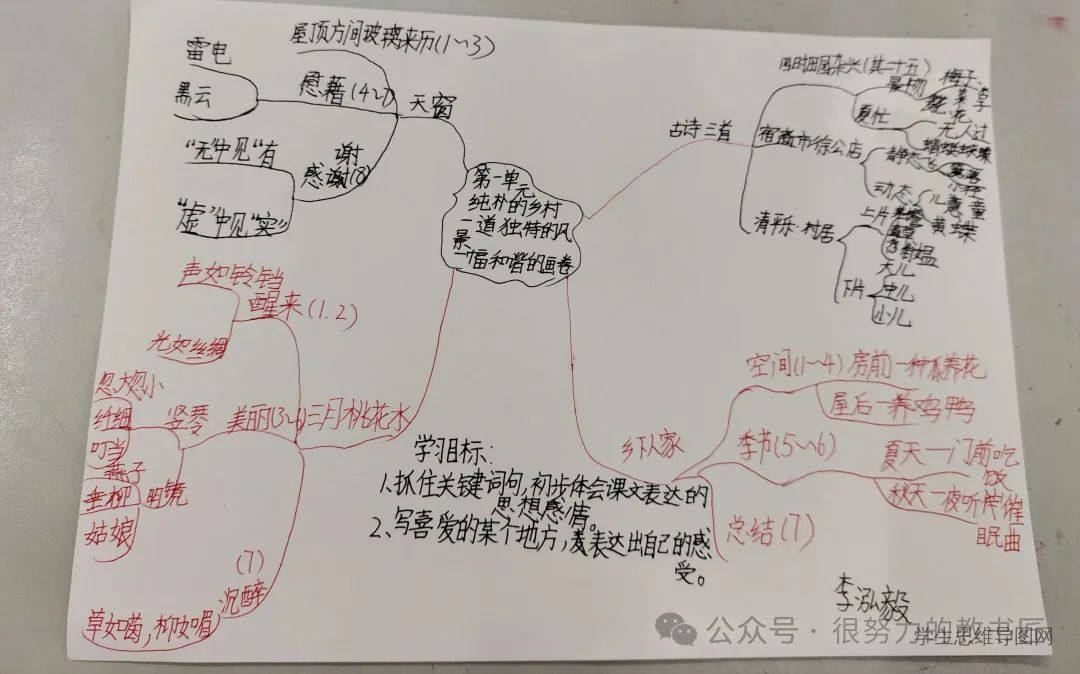 第一单元
纯朴的乡村
一道独特的风
景
一幅和谐的画卷
古诗三首
四时田园杂兴(其二十五)
景物
梅子
花
夏忙
无人过
宿新市徐公店
静态
动态
儿童
黄蝶
清平乐·村居
上片
翁媪
下片
大儿
中儿
小儿
乡下人家
空间(1~4)
房前一种瓜养花
屋后一养鸡鸭
季节(5~6)
夏天一门前吃
饭
秋天一夜听
催
眠曲
总结(7)
天窗
屋顶方间玻璃来历(1~3)
慰藉(4~7)
雷电
黑云
谢
感谢(8)
"无"中见"有
"虚"中见"实"
三月桃花水
醒来(1.2)
声如铃铛
光如丝绸
美丽(3~6)
竖琴
忽大忽小
纤细
叮当
明镜
燕子
垂柳
姑娘
(7)
沉醉
草如茵,柳如眉
学习目标:
1、抓住关键词句,初步体会课文表达的
思想感情。
2、写喜爱的某个地方,表达出自己的感
受。
李泓毅
公众号·很努力的教书匠
学生思维导图网